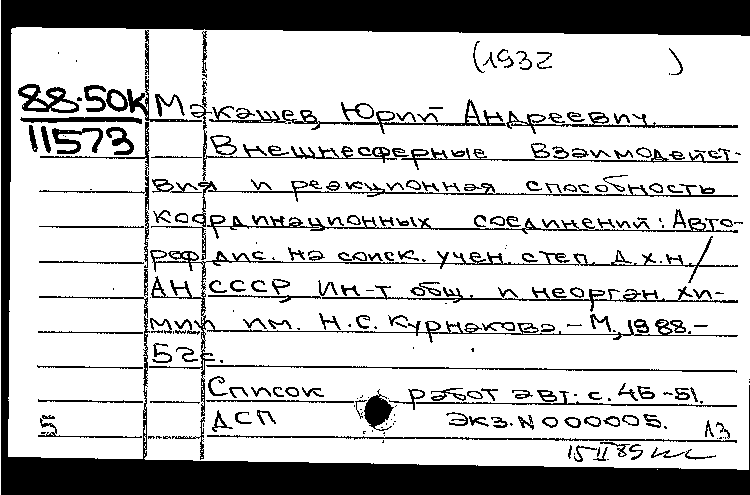 (1932 )
88-50К
11573
Макашев, Юрий Андреевич.
Внешнесферные взаимодейст-
вия и реакционная способность
координационных соединений: Авто-
реф. дис. на соиск. учен. степ. д.х.н./
АН СССР, Ин-т общ. и неорган. хи-
мии им. Н.С. Курнакова. - М., 1988. -
52с.
Список работ авт.: с. 45-51.
ДСП Экз. N 000005.
5 13
15 II 89